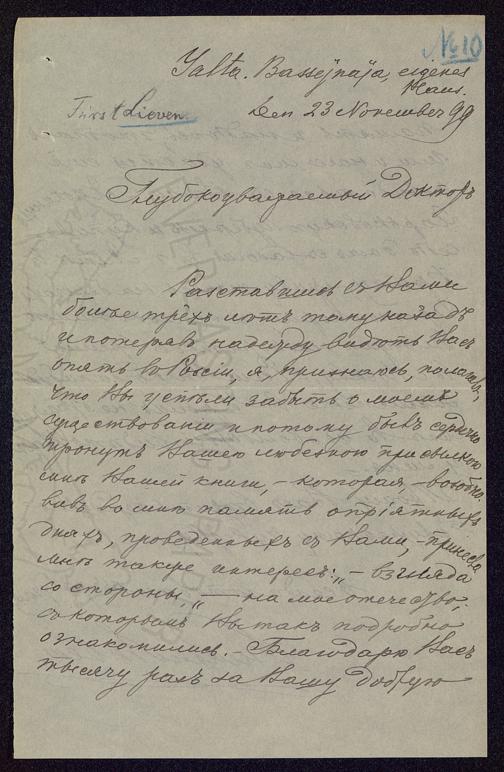 № 10
Yalta. Bassejnaja, eigenes
Haus.
Fürst Lieven
den 23 November 99
Глубокоуважаемый Докторъ
Разставшись съ Вами
больѣе трёхъ лѣтъ тому назадъ
и потерявъ надежду видѣть Васъ
опять въ Россіи, я, признаюсь, полагалъ,
что Вы успѣли забыть о моемъ
существованіи и потому былъ сердечно
тронутъ Вашею любезною присылкою
мнѣ Вашей книги, – которая, – возобно-
вивъ во мнѣ память о пріятныхъ
дняхъ, проведенныхъ съ Вами, – принесла
мнѣ также интересъ: „ – взгляда
со стороны, “ — на мое отечество,
съ которымъ Вы такъ подробно
ознакомились. – Благодарю Васъ
тысячу разъ за Вашу добрую